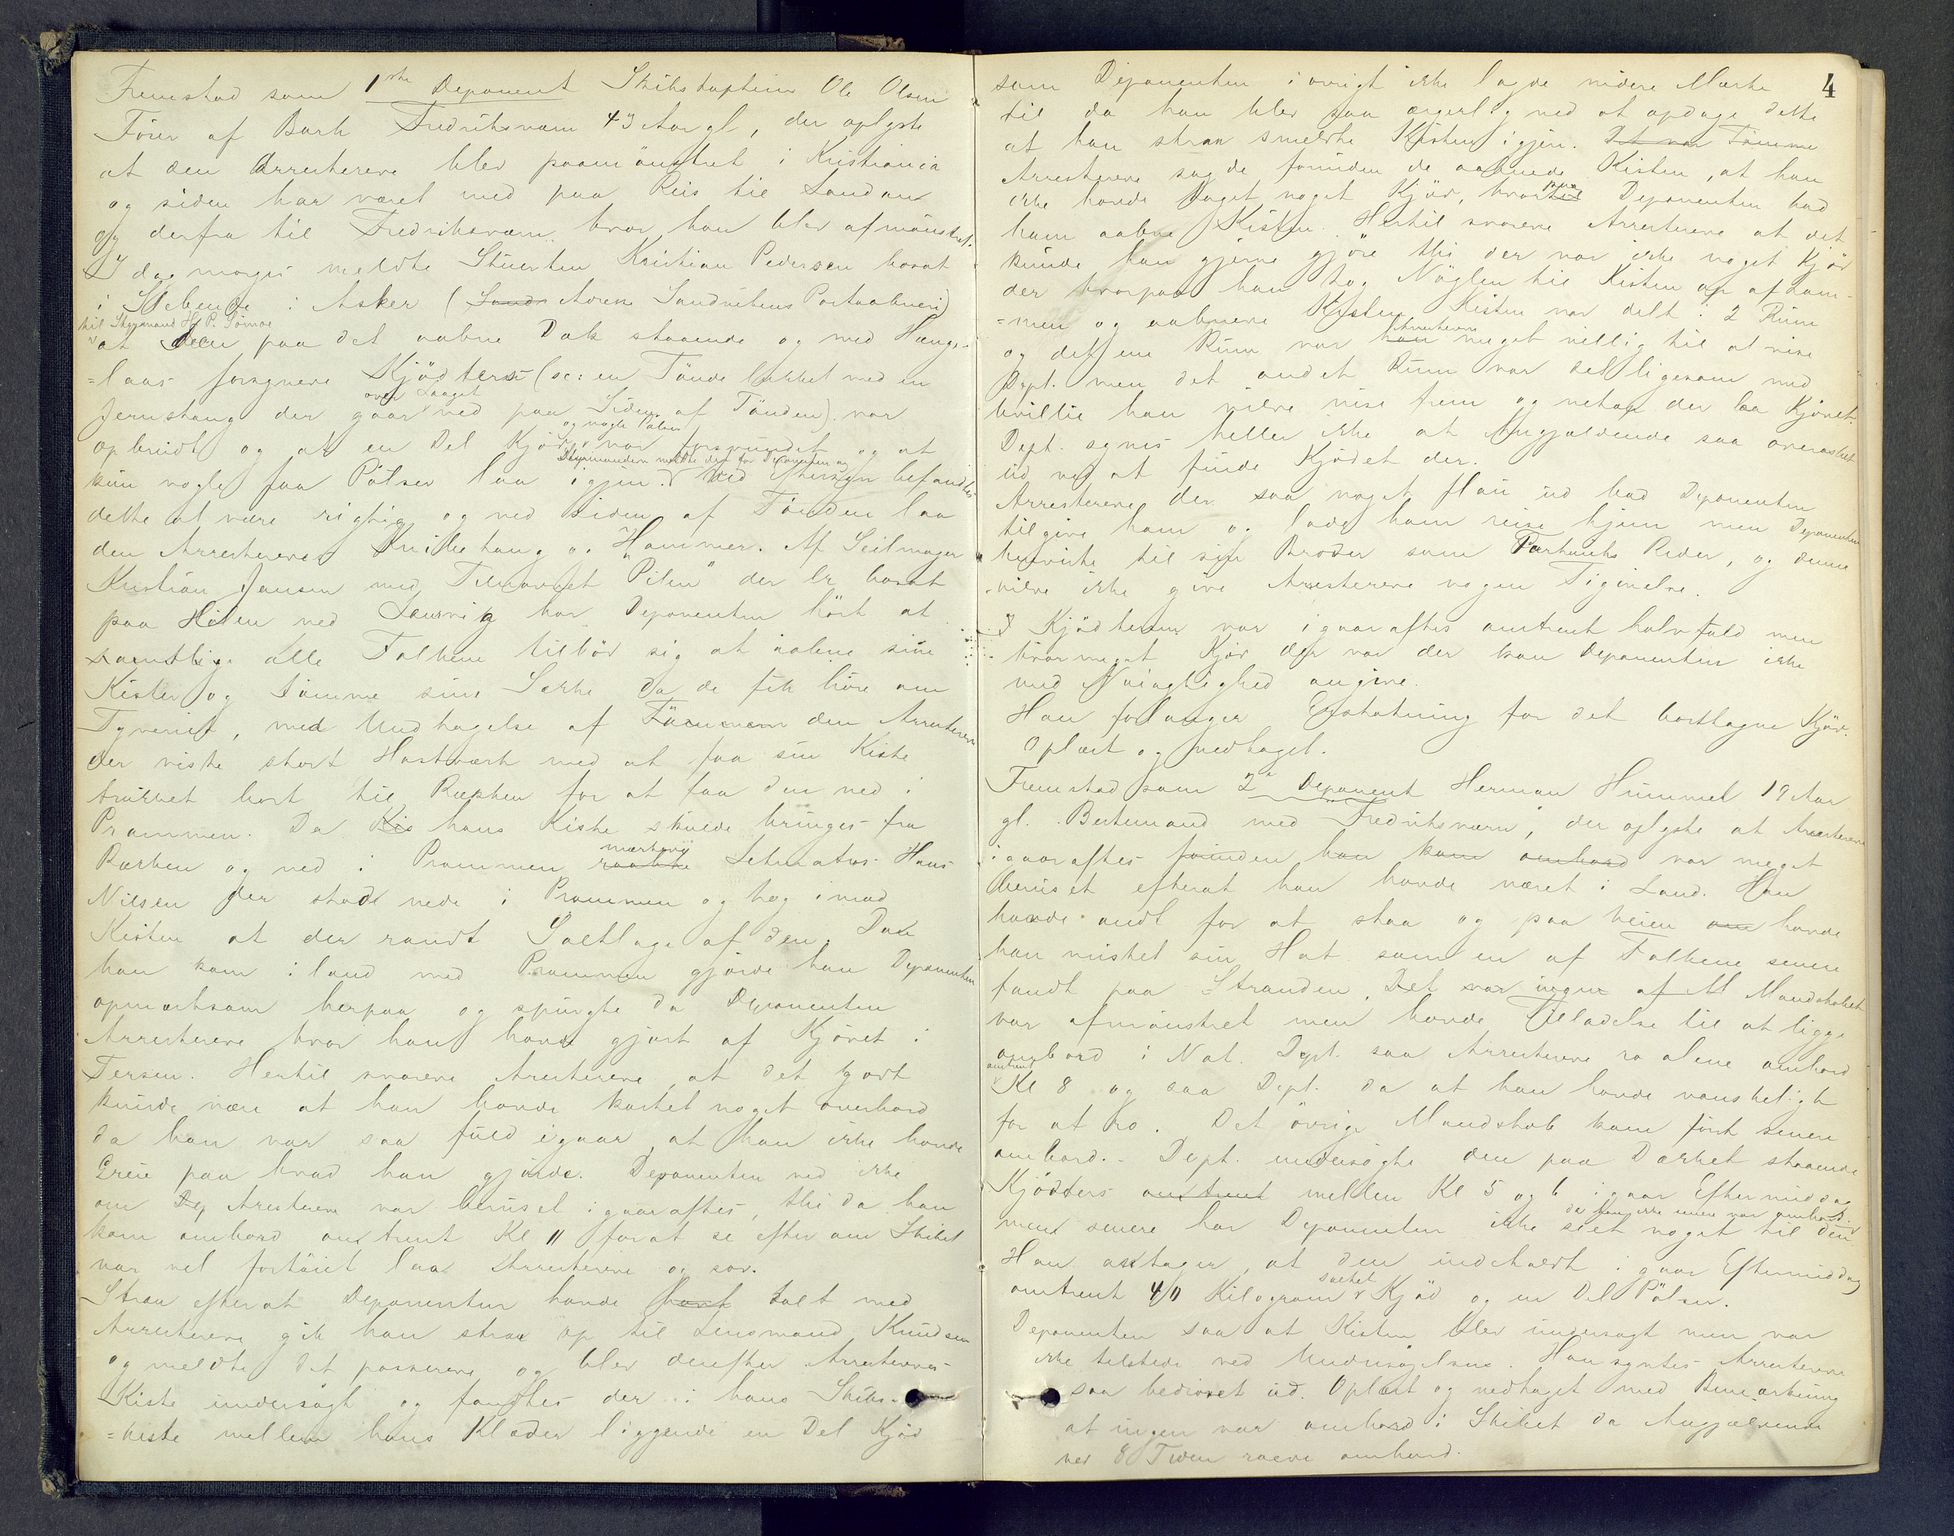 Fremstod som 1ste Deponent Skibskaptein Ole Olsen
Fører af Bark Fredriksværn 43 Aar gl, der oplyste
at den Arresterede blev paamönstret i Kristiania
og siden har været med paa Reis til London
og derfra til Fredriksværn hvor han blev afmönstret.
I dag morges meldte Stuerten Kristian Pedersen boeat
i Slebende i Asker (Sands Adresse Sandvikens Postaabneri)
til Styrmand H. P. Tömos
at den paa det aabne Dæk staaende og med Hænge-
=laas forsynede Kjödters (sc: en Tönde lukket med en
over Laaget
Jernstang der gaar ned paa Siden af Tönden) var
og nogle Pölser
opbrudt og at en Del Kjöd var forsvundet og at
Styrmanden meldte det for Deponenten og
kun nogle faa Pölser laa igjen. Ved Eftersyn befandtes
dette at være rigtig og ved Siden af Tönden laa
den Arresteredes Knibetang og Hammer. Af Seilmager
Kristian Jansen med Tilnavnet "Pilen" der er boeat
paa Hölen ved Laurvig har Deponenten hört at
samtlige alle Folkene tilböd sig at aabne sine
Kister og tömme sine Sække da de fik höre om
Tyveriet, med Undtagelse af Tömmerm den Arresterede
der viste stort Hastværk med at faa sin Kiste
trukket bort til Rækken for at faa den ned i
Prammen. Da Kis hans Kiste skulde bringes fra
mærkede
Rækken og ned i Prammen raabte Letmatros Hans
Nilsen der stod nede i Prammen og tog imod
Kisten at der randt Saltlage af den. Da
han kom i land med Prammen gjörde han Deponenten
opmærksom herpaa og spurgte da Deponenten
Arresterede hvor han havde gjort af Kjödet i
Tersen. Hertil svarede Aresterede, at det godt
kunde være at han havde kastet noget overbord
da han var saa fuld igaar at han ikke havde
Greie paa hvad han gjörde. Deponenten ved ikke
om De Aresterede var beruset igaaraftes, thi da han
kom ombord omtrent Kl 11 forat se efter om Skibet
var vel fortöiet laa Arresterede og sov.
Strax efterat Deponenten havde havt talt med
Arresterede gik han strax op til Lensmand Knudsen
og meldte det passerede og blev derefter Arresteredes
Kiste undersögt og fandtes der i hans Skibs-
=kiste mellem hans Klæder liggende en Del Kjöd
4
som Deponenten iövrigt ikke lagde videre Mærke
til da han blev saa ærgerlig ved at opdage dette
at han strax smeldte Kisten igjen. Det var Tömme
Arresterede sagde forinden de aabnede Kisten, at han
paa
ikke havde taget noget Kjöd, hvortil Deponenten bad
ham aabne Kisten. Hertil svarede Arresterede at det
kunde han gjerne gjöre thi der var ikke noget Kjöd
der hvorpaa han tog Nöglen til Kisten op af Lom-
=men og aabnede Kisten. Kisten var delt i 2 Rum
Arresterede
og det ene Rum var han meget villig til at vise
Dept. men det andet Rum var det ligesom med
hvilket han vilde vise frem og netop der laa Kjödet.
Dept. synes heller ikke at Angjældende saa overrasket
ud ved at finde Kjödet der.
Arresterede der saa noget flau ud bad Deponenten
tilgive ham og lade ham reise hjem men Deponenten
henviste til sin Broder som Parthavende Reder, og denne
vilde ikke give Arresterede nogen Tilgivelse.
I Kjödtersen var igaaraftes omtrent halvfuld men
hvormeget Kjöd der var der kan Deponenten ikke
med Nöiagtighed angive.
Han forlanger Erstatning for det borttagne Kjöd.
Oplæst og vedtaget.
Fremstod som 2den Deponent Herman Hummel 19 Aar
gl. Bestemand med "Fredriksværn", der oplyste at Arresterede
igaaraftes forinden han kom ombord var meget
beruset efterat han havde været i Land. Han
havde ondt for at staa og paa Veien om havde
han mistet sin Hat som en af Folkene senere
fandt paa Stranden. Det var ingen af M Mandskabet
var afmönstret men havde Tilladelse til at ligge
ombord i Nat. Dept. saa Arresterede ro alene ombord
omtrent
Kl 8 og saa Dept. da at han havde vanskeligt
for at ro. Det övrige Mandskab kom först senere
ombord. - Dept. undersögte den paa Dækket staaende
Kjödters omtrent mellem Kl 5 og 6 igaar Eftermiddag
da han ikke senere var ombord
men senere har Deponenten ikke seet noget til den
Han antager, at den indeholdt i gaar Eftermiddag
saltet
omtrent 40 Kilogram Kjöd og en Del Pölser.
Deponenten saa at Kisten blev undersögt men var
ikke tilstede ved Undersögelsen. Han syntes Arresterede
saa bedrövet ud. Oplæst og vedtaget med Bemærkning
at ingen var ombord i Skibet da Angjældende
ved 8 Tiden roede ombord.